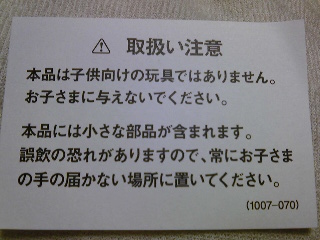 ⚠ 取扱い注意
本品は子供向けの玩具ではありません。
お子さまに与えないでください。
本品には小さな部品が含まれます。
誤飲の恐れがありますので、常にお子さま
の手の届かない場所に置いてください。
(1007-070)